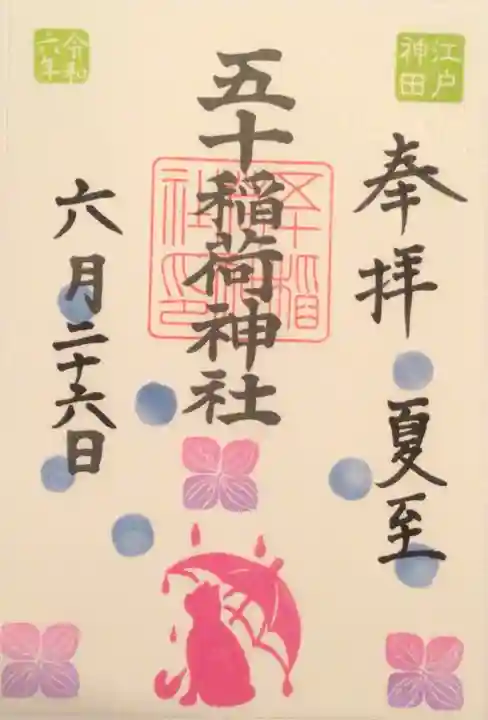 江戸
神田
奉拝 夏至
五十稲荷神社
六月二十六日
令和
六年